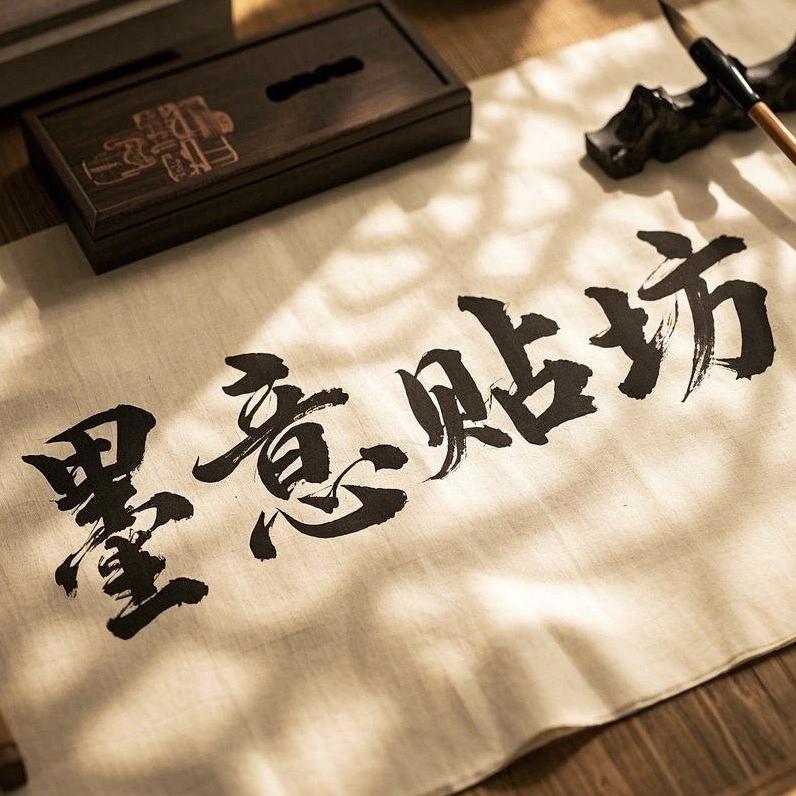 墨意贴坊